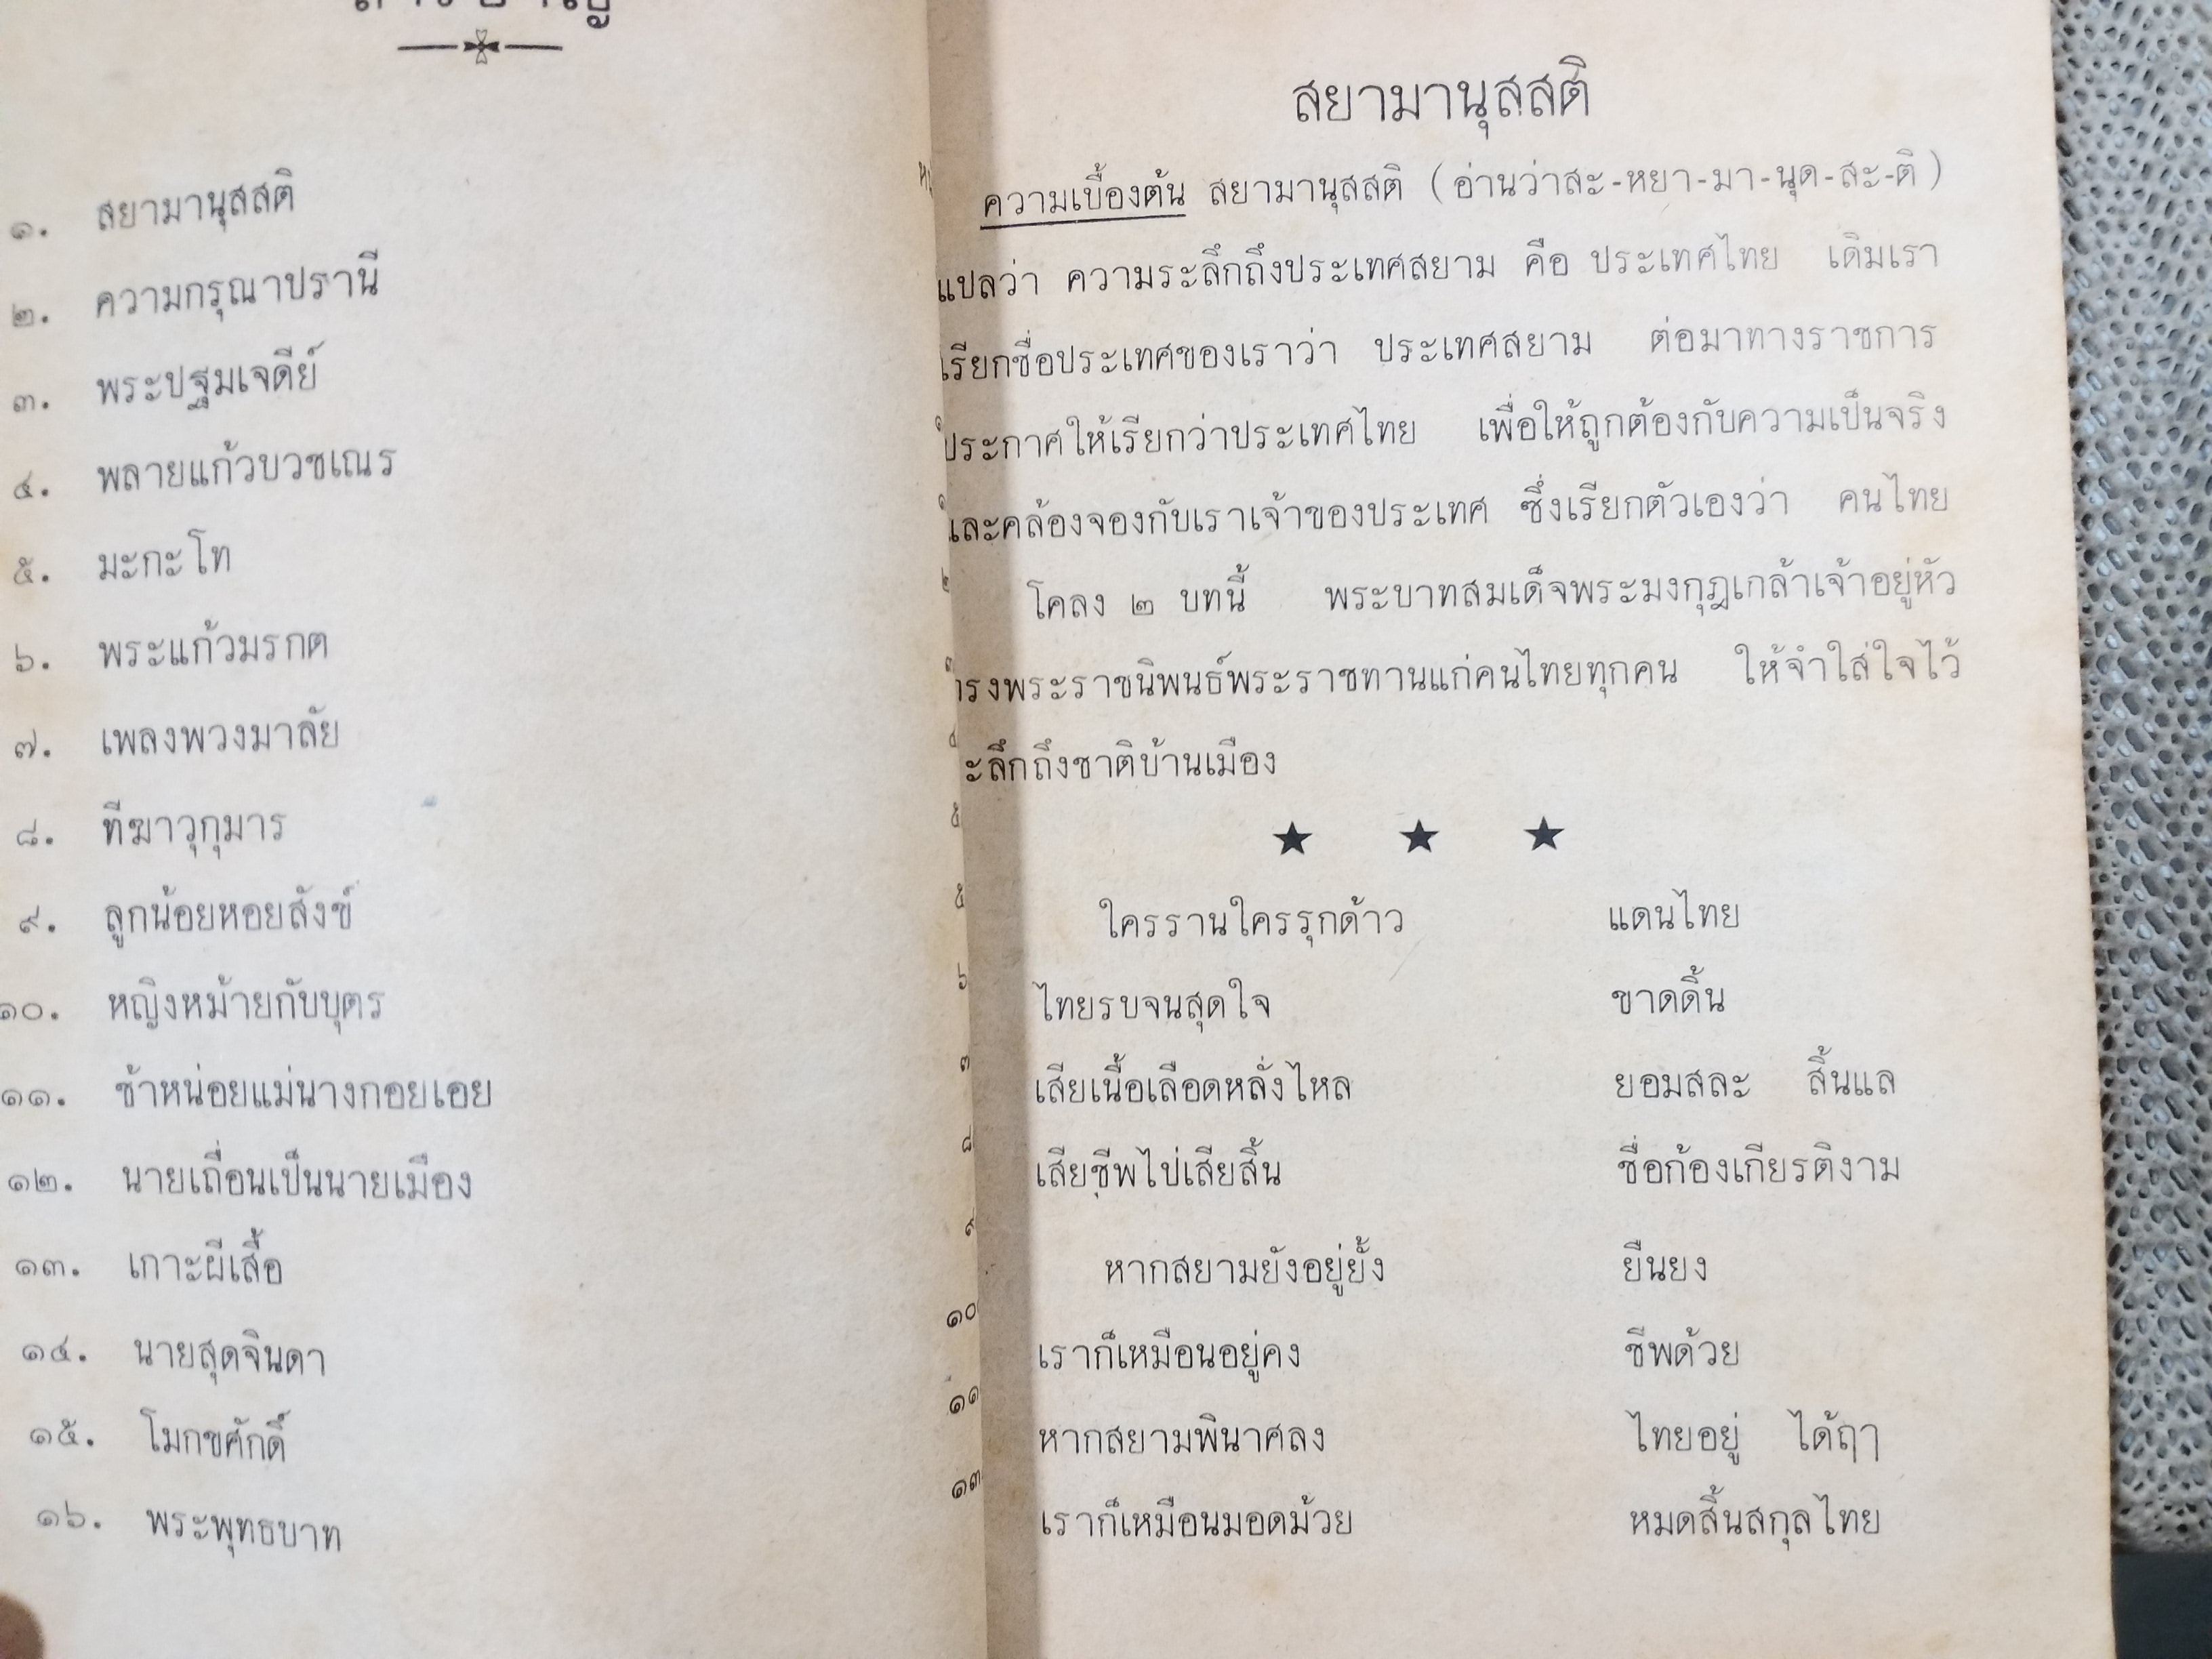 ๑. สยามานุสสติ
๒. ความกรุณาปรานี
๓. พระปฐมเจดีย์
๔. พลายแก้วบวชเณร
๕. มะกะโท
๖. พระแก้วมรกต
๗. เพลงพวงมาลัย
๘. ทีฆาวุกุมาร
๙. ลูกน้อยหอยสังข์
๑๐. หญิงหม้ายกับบุตร
๑๑. ช้าหน่อยแม่นางกอยเอย
๑๒. นายเถื่อนเป็นนายเมือง
๑๓. เกาะผีเสื้อ
๑๔. นายสุดจินดา
๑๕. โมกขศักดิ์
๑๖. พระพุทธบาท
สยามานุสสติ
ความเบื้องต้น สยามานุสสติ (อ่านว่าสะ-หยา-มา-นุด-สะ-ติ)
แปลว่า ความระลึกถึงประเทศสยาม คือ ประเทศไทย เดิมเรา
เรียกชื่อประเทศของเราว่า ประเทศสยาม ต่อมาทางราชการ
ประกาศให้เรียกว่าประเทศไทย เพื่อให้ถูกต้องกับความเป็นจริง
และคล้องจองกับเราเจ้าของประเทศ ซึ่งเรียกตัวเองว่า คนไทย
โคลง ๒ บทนี้ พระบาทสมเด็จพระมงกุฎเกล้าเจ้าอยู่หัว
ทรงพระราชนิพนธ์พระราชทานแก่คนไทยทุกคน ให้จำใส่ใจไว้
ะลึกถึงชาติบ้านเมือง
★ ★ ★
ใครรานใครรุกด้าว แดนไทย
ไทยรบจนสุดใจ ขาดดิ้น
เสียเนื้อเลือดหลั่งไหล ยอมสละ สิ้นแล
เสียชีพไป่เสียสิ้น ชื่อก้องเกียรติงาม
หากสยามยังอยู่ยั้ง ยืนยง
เราก็เหมือนอยู่คง ชีพด้วย
หากสยามพินาศลง ไทยอยู่ ได้ฤๅ
เราก็เหมือนมอดม้วย หมดสิ้นสกุลไทย